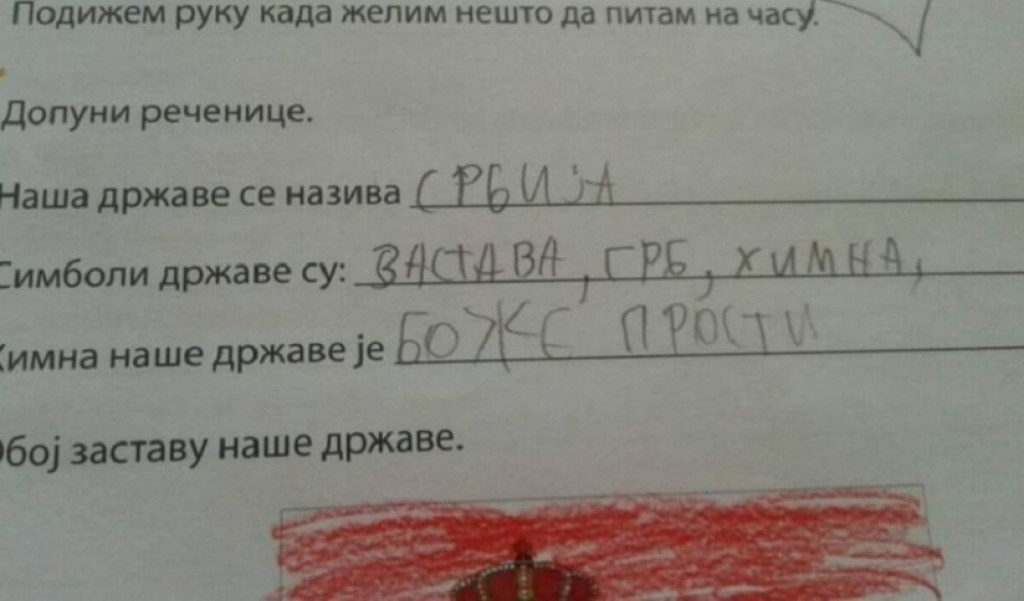 Подижем руку када желим нешто да питам на часу.
Допуни реченице.
Наша државе се назива СРБИЈА
Симболи државе су: ЗАСТАВА, ГРБ, ХИМНА,
Химна наше државе је БОЖЕ ПРОСТИ
Обој заставу наше државе.